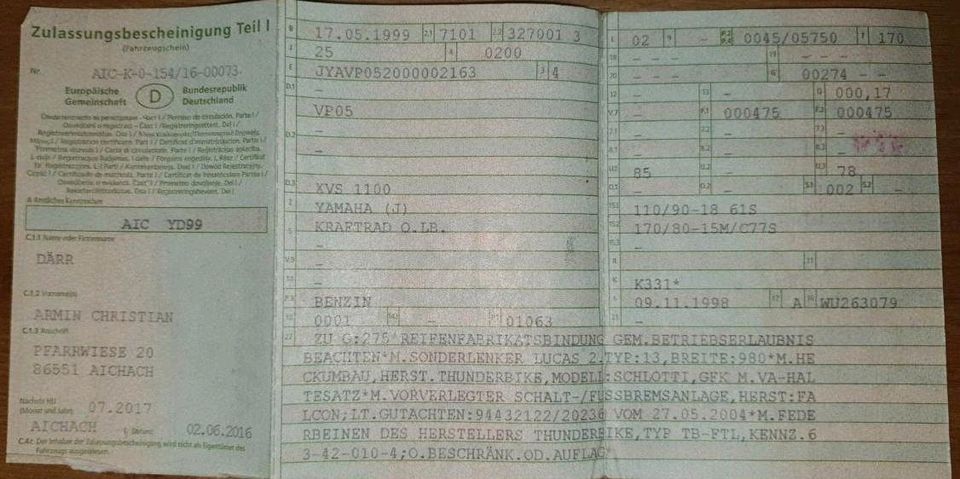 Zulassungsbescheinigung Teil I
(Fahrzeugschein)
Nr. AIC-K-0-154/16-00073
Europäische Gemeinschaft
D
Bundesrepublik Deutschland
A Amtliches Kennzeichen
AIC YD99
C.1.1 Name oder Firmenname
DÄRR
C.1.2 Vorname(n)
ARMIN CHRISTIAN
C.1.3 Anschrift
PFARRWIESE 20
86551 AICHACH
Nächste HU
(Monat und Jahr) 07.2017
AICHACH 02.06.2016
C.4c Der Inhaber der Zulassungsbescheinigung wird nicht als Eigentümer des
Fahrzeugs ausgewiesen.
B 17.05.1999 2.1 7101 2.2 327001 3
J 25 4 0200
E JYAVP052000002163 3 4
D.1 -
VP05
D.2 -
-
-
D.3 XVS 1100
2 YAMAHA (J)
5 KRAFTRAD O.LB.
-
V.9 -
-
P.3 BENZIN
10 0001 14.1 - P.1 01063
L 02 9 - 0045/05750 T 170
18 - - -
20 - - - G 00274 - -
12 - 13 - Q 000,17
V.7 - F.1 000475 F.2 000475
7.1 - 7.2 - 7.3 -
8.1 - 8.2 - 8.3 -
U.1 85 U.2 - U.3 78
O.1 - O.2 - S.1 002 S.2 -
15.1 110/90-18 61S
15.2 170/80-15M/C77S
-
R -
K K331*
6 09.11.1998 17 A 16 WU263079
21 -
22 ZU G:275*REIFENFABRIKATSBINDUNG GEM.BETRIEBSERLAUBNIS
BEACHTEN*M.SONDERLENKER LUCAS 2.TYP:13,BREITE:980*M.HE
CKUMBAU,HERST.THUNDERBIKE,MODELL:SCHLOTTI,GFK M.VA-HAL
TESATZ*M.VORVERLEGTER SCHALT-/FUSSBREMSANLAGE,HERST:FA
LCON;LT.GUTACHTEN:94432122/20236 VOM 27.05.2004*M.FEDE
RBEINEN DES HERSTELLERS THUNDERBIKE,TYP TB-FTL,KENNZ.6
3-42-010-4;O.BESCHRÄNK.OD.AUFLAG*